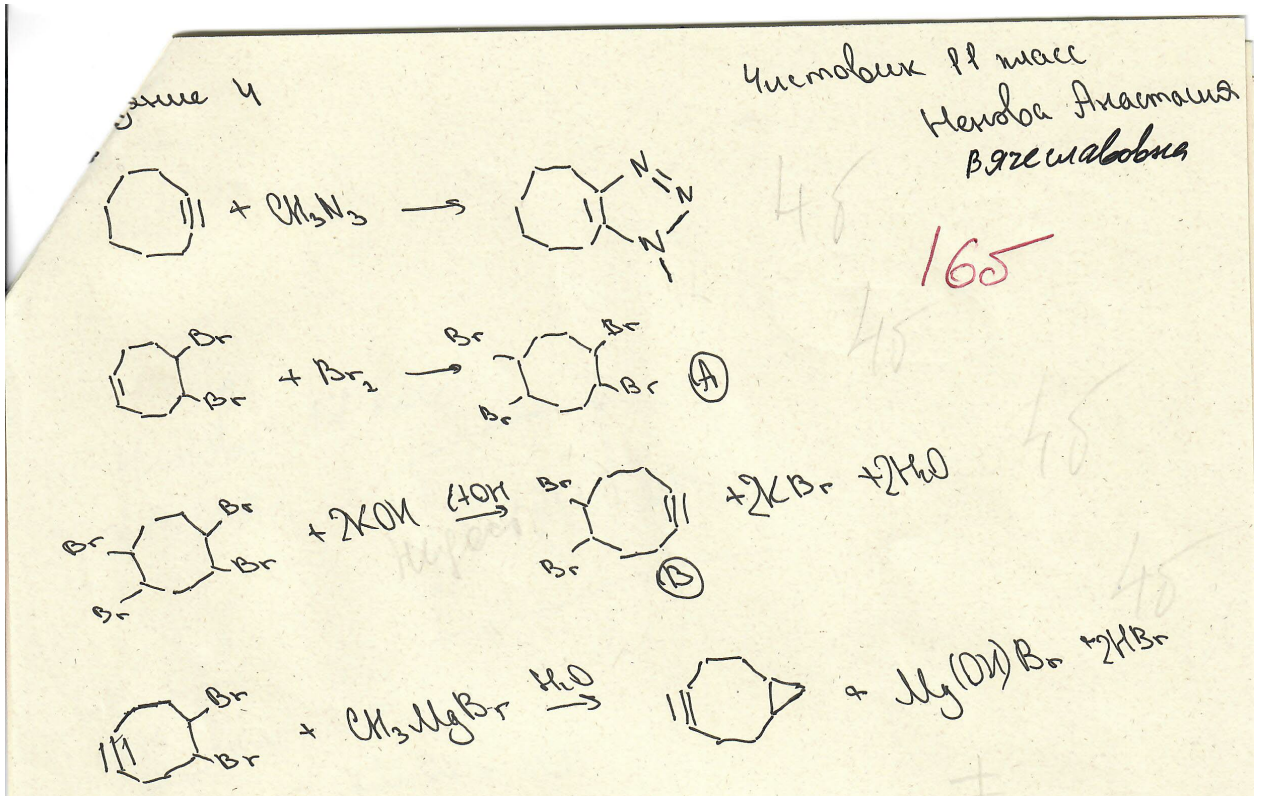 Чистовик 11 класс
Ненова Анастасия
Вячеславовна
4
165
+ CH₃N₃ → N N N
4б
Br Br + Br₂ → Br Br Br Br A
4б
4б
Br Br Br Br + 2KOH Br Br B + 2KBr + 2H₂O
4б
Br Br + CH₃MgBr H₂O → + Mg(OH)Br + 2HBr